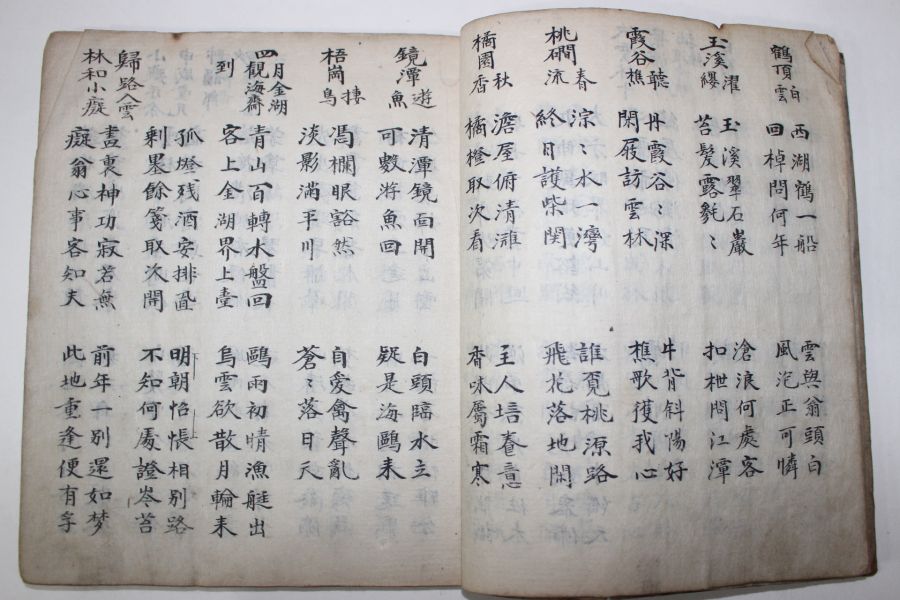 鶴頂白雲
西湖鶴一船 雲與翁頭白
回棹問何年 風泡正可憐
玉溪濯纓
玉溪翠石巖 滄浪何處客
苔髮露毿〻 扣枻問江潭
霞谷聽樵
丹霞谷〻深 牛背斜陽好
閑屐訪雲林 樵歌獲我心
桃磵春流
淙〻水一灣 誰覔桃源路
終日護柴関 飛花落地閒
橘園秋香
澹屋俯清 主人培養意
橘橙取次看 香味屬霜寒
鏡潭遊魚
清潭鏡面開 白頭臨水立
可數游魚回 疑是海鷗来
梧崗捿鳥
馮欄眼豁然 自愛禽聲亂
淡影滿平川 蒼〻落日天
四月金湖觀海齋到
青山百轉水盤回 鷗雨初晴漁艇出
客上金湖界上臺 烏雲欲散月輪来
孤燈残酒安排置 明朝怊悵相別路
剩墨餘箋取次開 不知何處證岑苔
歸路入雲林和小癡
畫裏神功寂若無 前年一別還如梦
癡翁心事客知夫 此地重逢便有孚